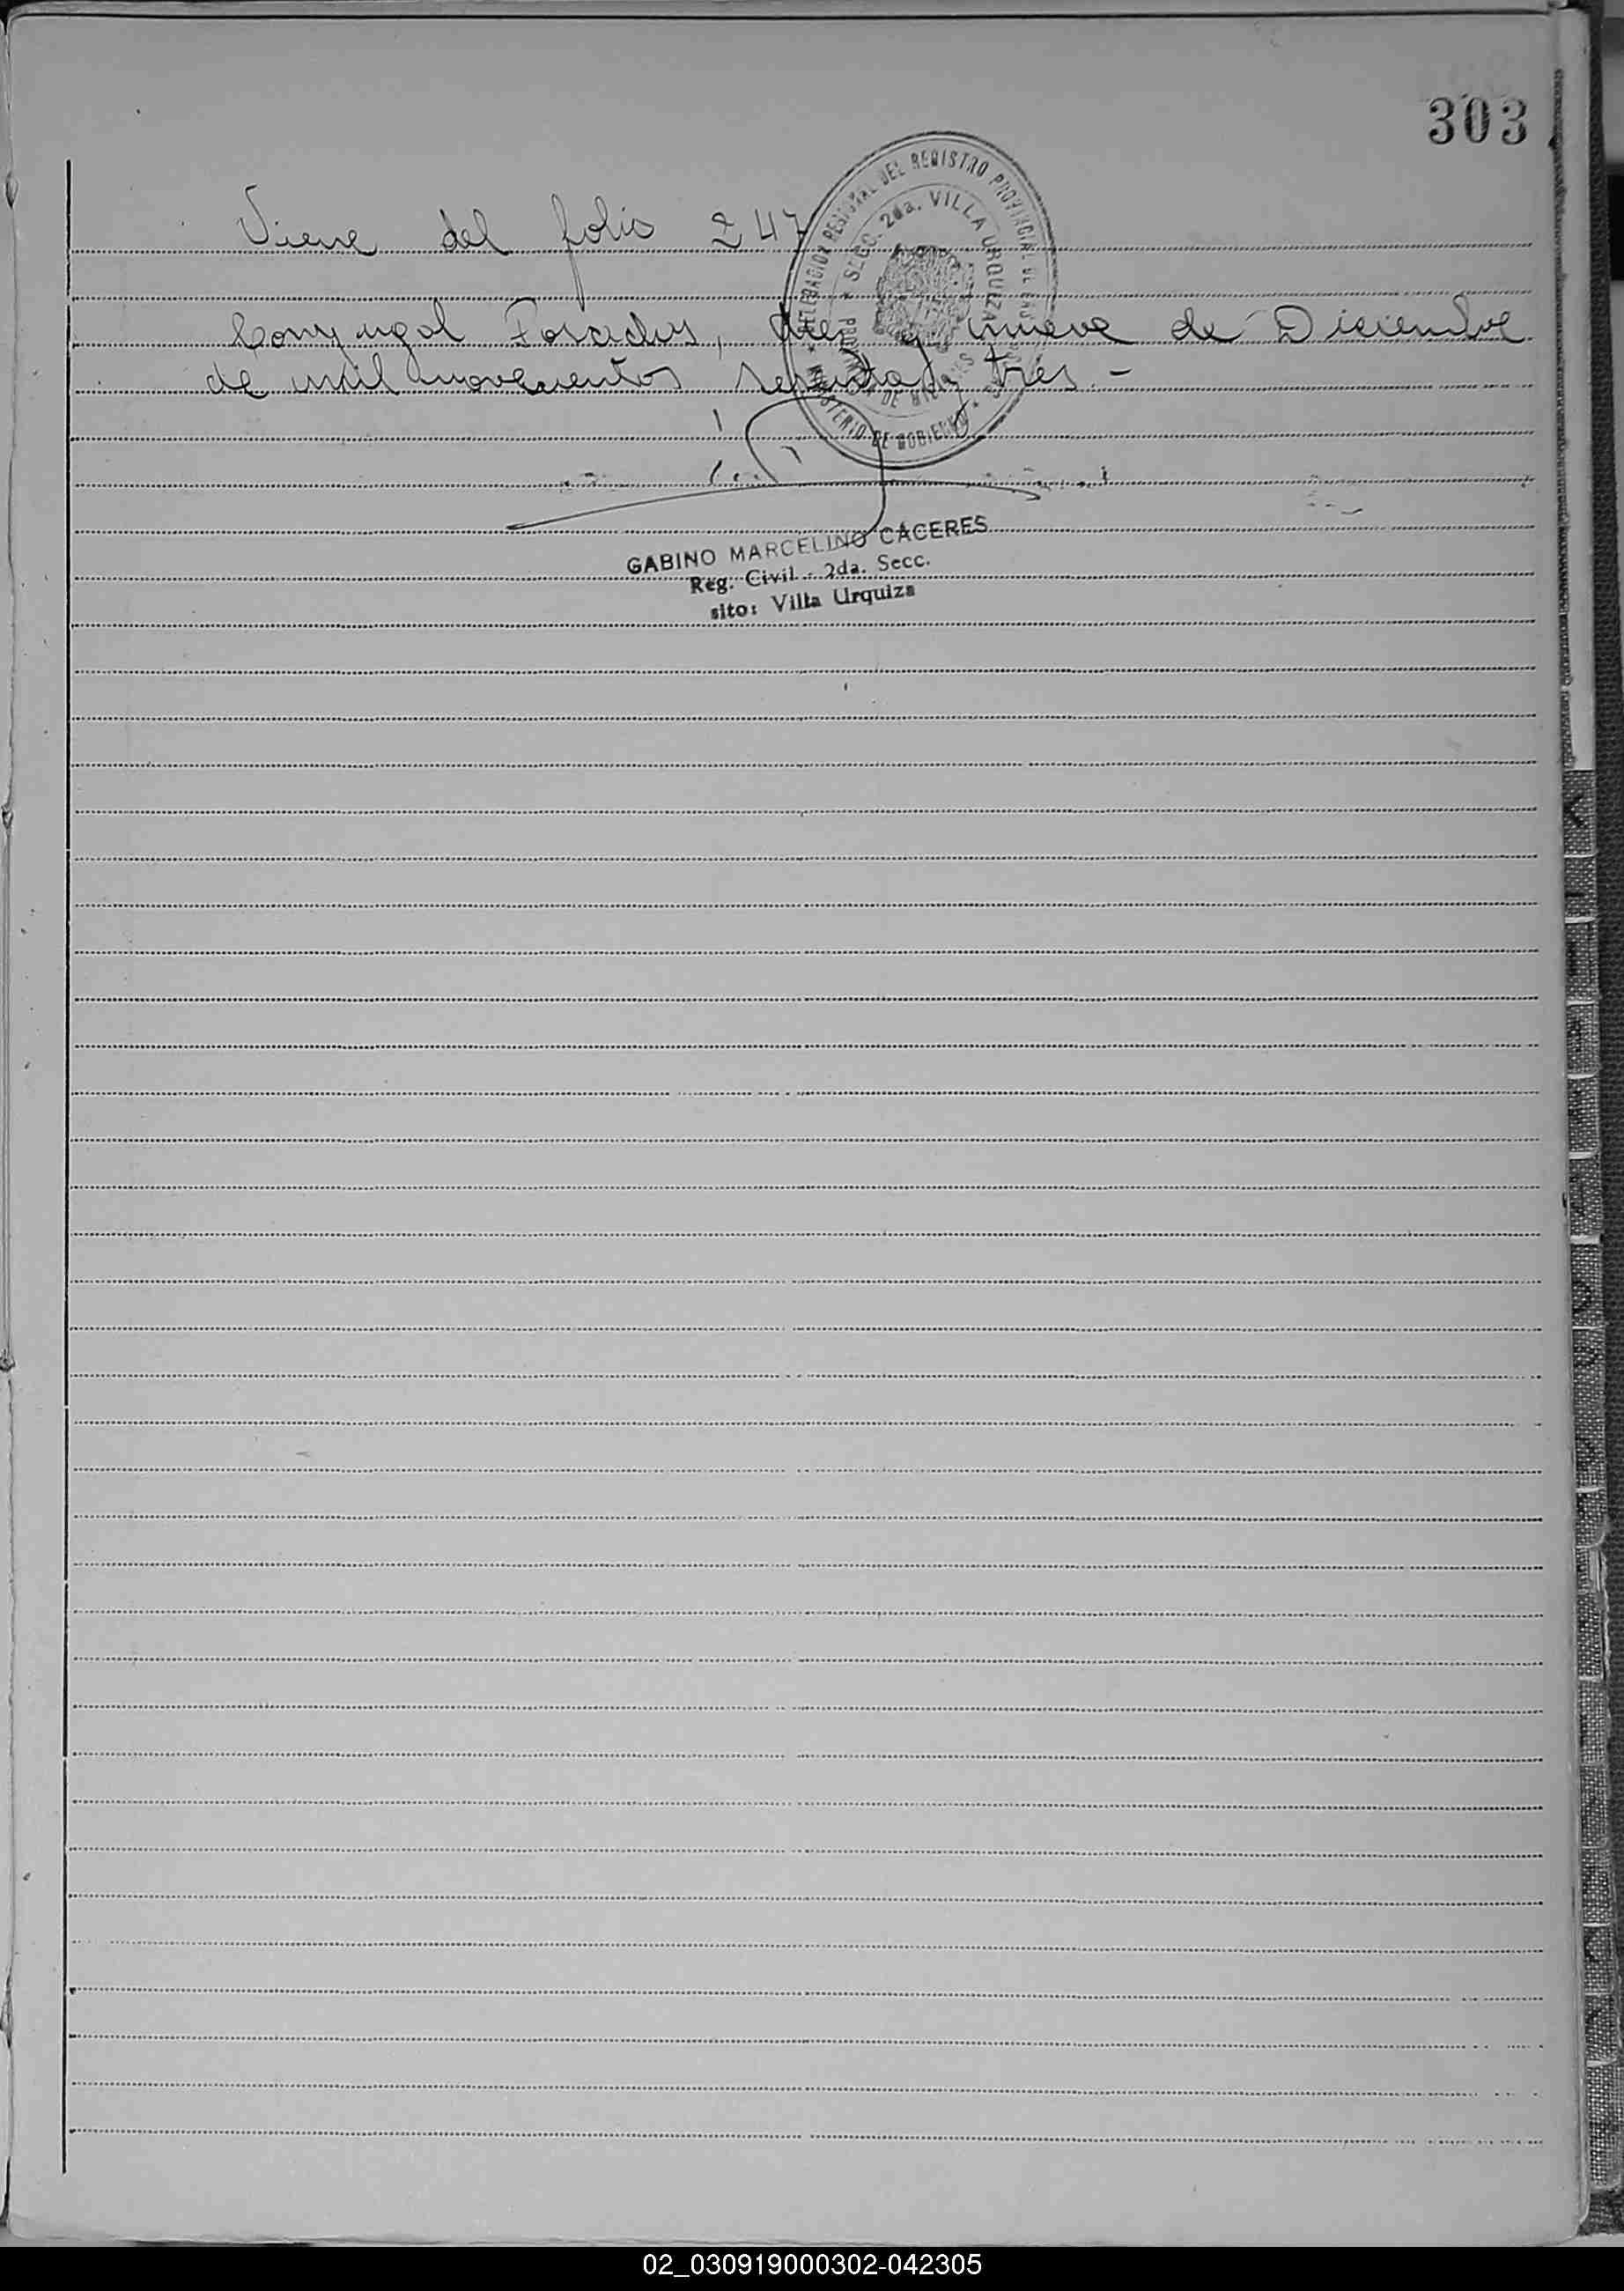 303
Viene del folio 247
Conyugal Posadas, diez y nueve de Diciembre
de mil novecientos sesenta y tres.-
DELEGACION REGIONAL DEL REGISTRO PROVINCIAL DE
MINISTERIO DE GOBIERNO
SECC. 2da. VILLA URQUIZA
DE MISIONES
GABINO MARCELINO CÁCERES
Reg. Civil - 2da. Secc.
sito: Villa Urquiza
02_030919000302-042305